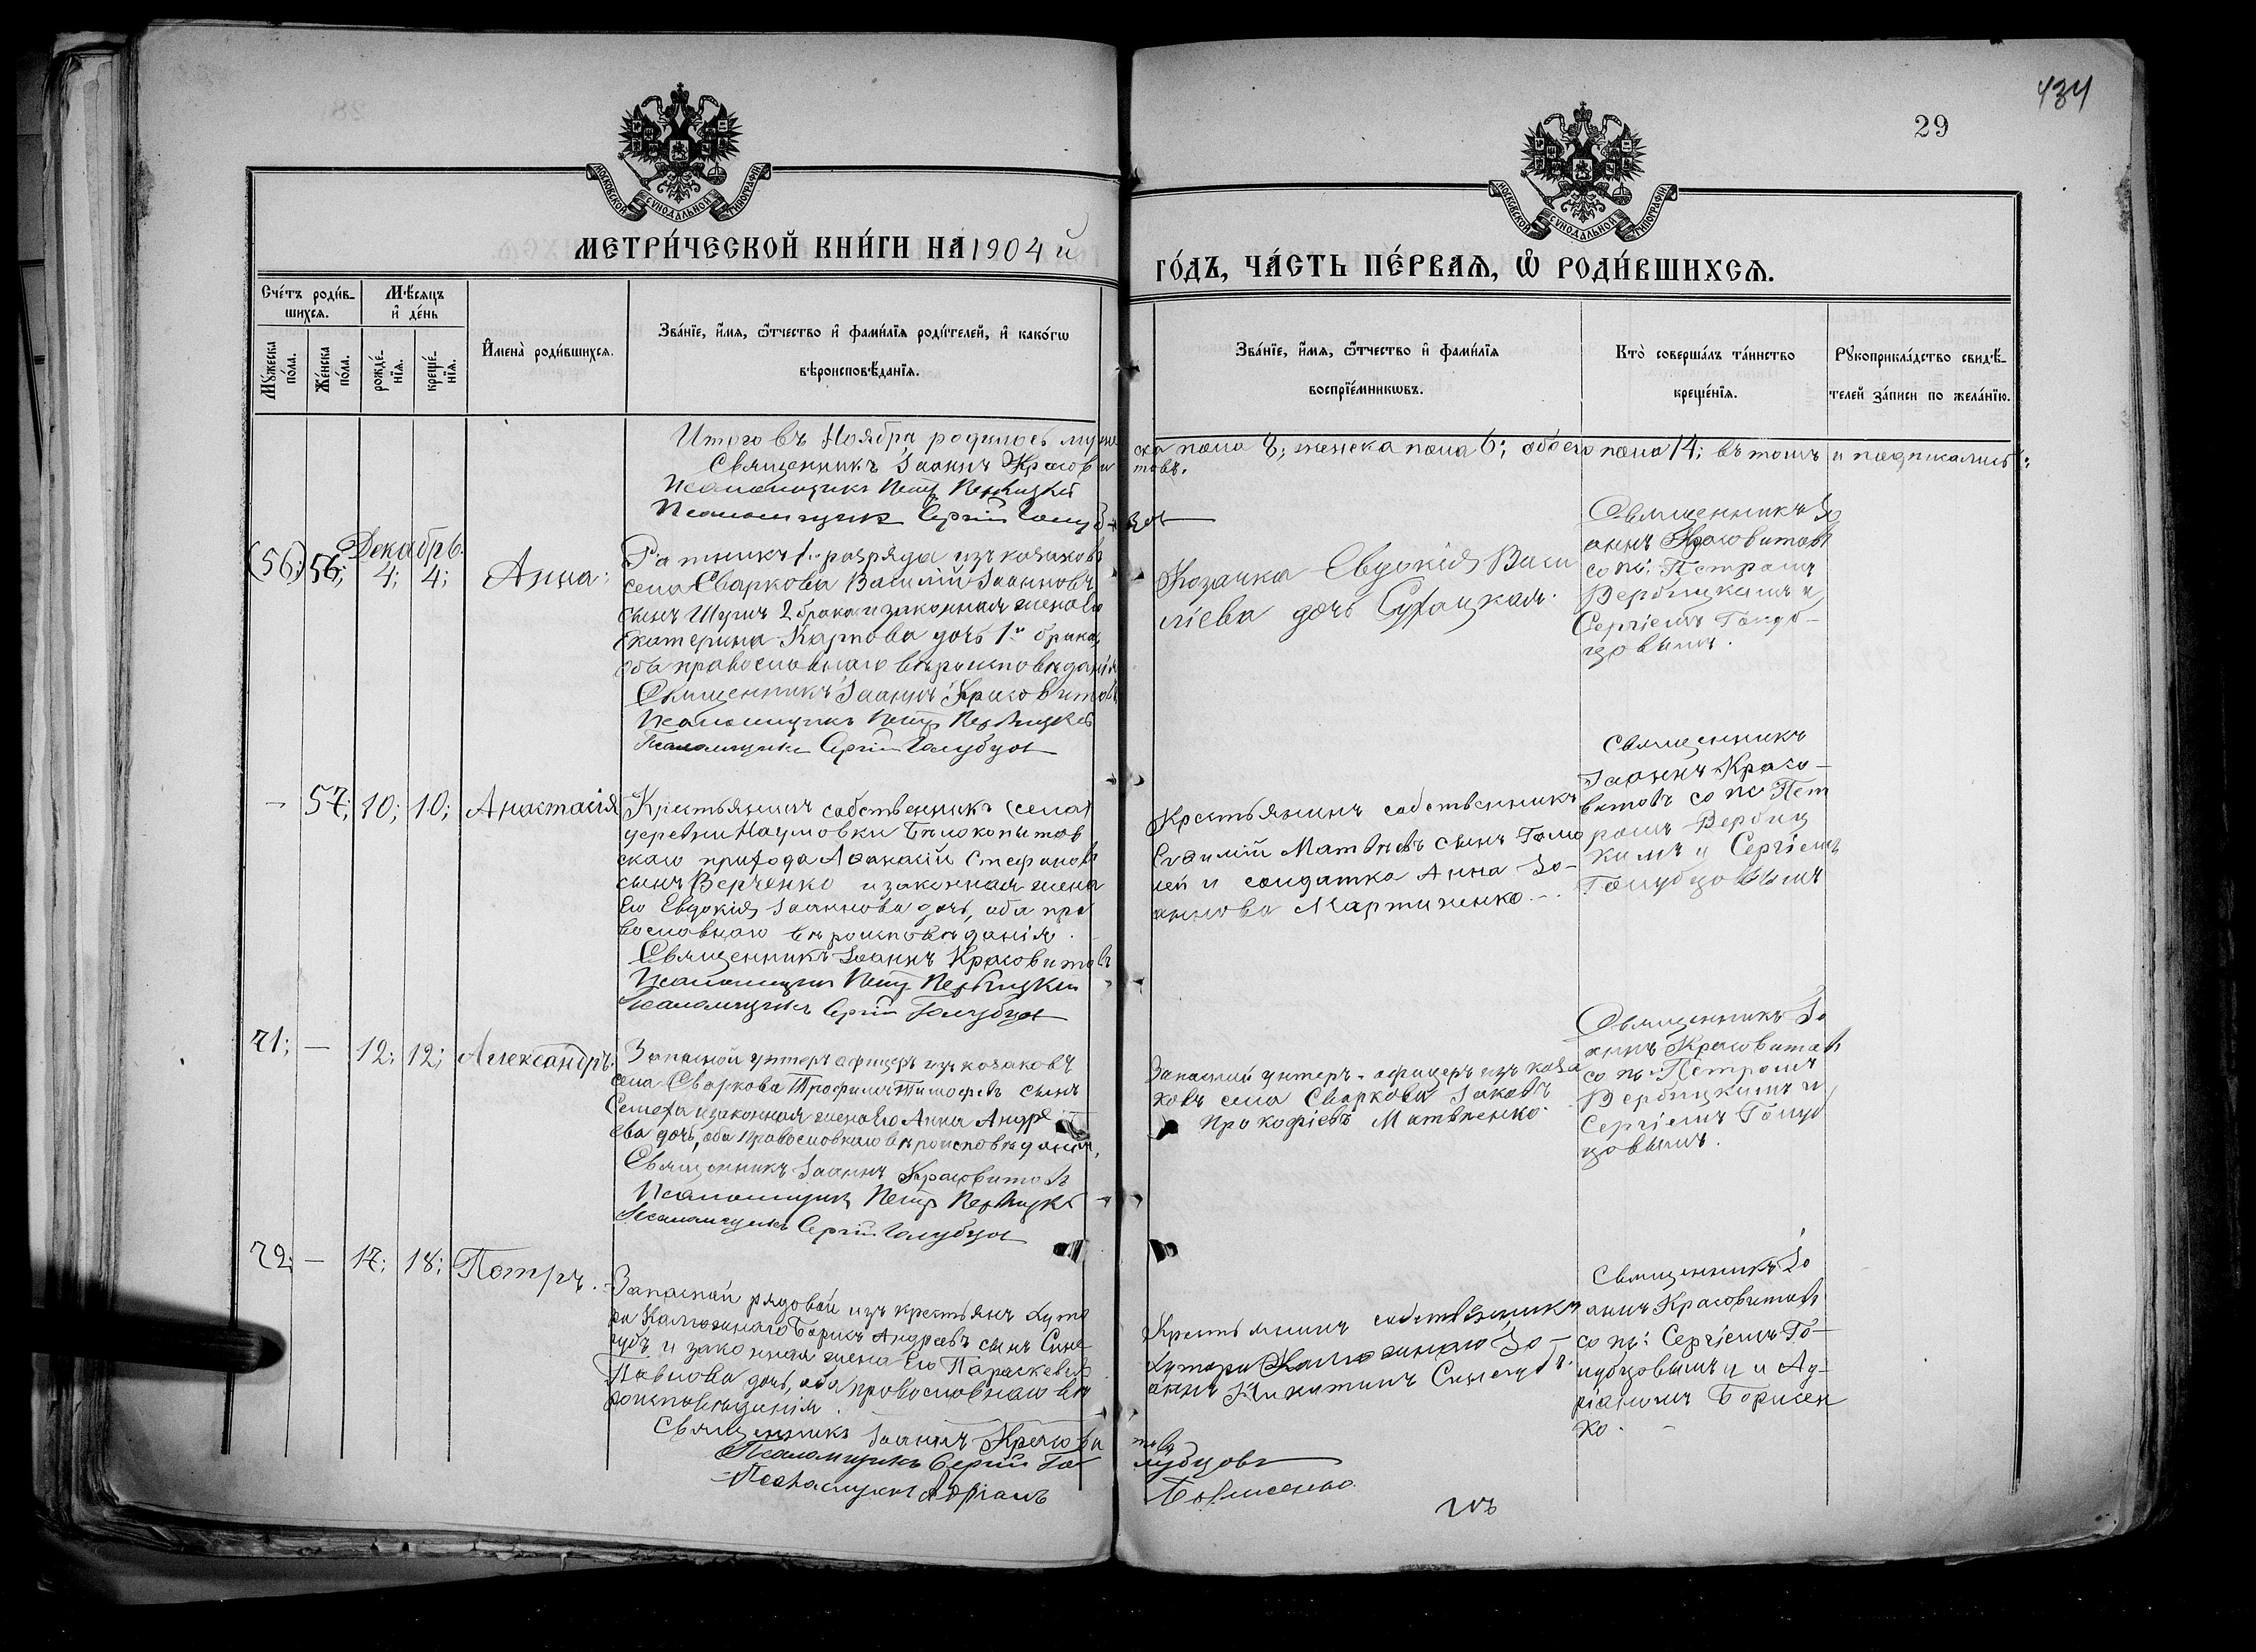 434
29
МОСКОВСКОЙ СУНОДАЛЬНОЙ ТИПОГРАФІИ
МОСКОВСКОЙ СУНОДАЛЬНОЙ ТИПОГРАФІИ
МЕТРИ́ЧЕСКОЙ КНИ́ГИ НА 1904 й
ГО́ДЪ, ЧА́СТЬ ПЕ́РВАѦ, Ѡ҆ РОДИ́ВШИХСѦ.
Сче́тъ роди́в-
шихсѧ.
Мѣ́сѧцъ
и҆ де́нь
Мꙋ́жеска
по́ла.
Же́нска
по́ла.
рожде́-
нїѧ.
креще́-
нїѧ.
И҆мена̀ роди́вшихсѧ.
Зва́нїе, и҆́мѧ, ѻ҆́тчество и҆ фами́лїѧ роди́телей, и҆ како́гѡ
вѣроисповѣ́данїѧ.
Зва́нїе, и҆́мѧ, ѻ҆́тчество и҆ фами́лїѧ
воспрїе́мникѡвъ.
Кто̀ соверша́лъ та́инство
креще́нїѧ.
Рꙋкоприкла́дство свидѣ́-
телей за́писи по жела́нїю.
Итого въ Ноябрѣ родилось муже
ска пола 8; женска пола 6; обоего пола 14; въ томъ и подписались:
Священникъ Іоаннъ Красови
товъ.
Псаломщикъ Петръ Вербицкій
Псаломщикъ Сергій Голуб
цовъ
Декабрь.
(56); 56; 4; 4; Анна:
Ратникъ 1. разряда изъ козаковъ
села Сваркова Василій Іоанновъ
сынъ Шугич 2 брака и законная жена его
Екатерина Карпова дочь 1го брака,
оба православнаго вѣроисповѣданія
Священникъ Іоаннъ Красовитовъ
Псаломщикъ Петръ Вербицкій
Псаломщикъ Сергій Голубцовъ
Козачка Евдокія Васи
ліева дочь Сухацкая.
Священникъ Іо
аннъ Красовитовъ
со пс: Петромъ
Вербицкимъ и
Сергіемъ Голуб-
цовымъ.
— 57; 10; 10; Анастасія
Крестьянинъ собственникъ (села)
деревни Наумовки Бѣлокопытов
скаго прихода Аѳанасій Стефановъ
сынъ Верченко и законная жена
его Евдокія Іоаннова дочь, оба пра
вославнаго вѣроисповѣданія.
Священникъ Іоаннъ Красовитовъ
Псаломщикъ Петръ Вербицкій
Псаломщикъ Сергій Голубцовъ
Крестьянинъ собственникъ
Евѳимій Матвѣевъ сынъ Гомо
лей и солдатка Анна Іо-
аннова Мартиненко.-.
Священникъ
Іоаннъ Красо-
витовъ со пс Пет
ромъ Вербиц
кимъ и Сергіемъ
Голубцовымъ
71; — 12; 12; Александръ.
Запасной унтеръ офицеръ изъ козаковъ
села Сваркова Трофимъ Тимофеевъ сынъ
Семеха и законная жена его Анна Андре
ева дочь, оба православнаго вѣроисповѣданія,
Священникъ Іоаннъ Красовитовъ
Псаломщикъ Петръ Вербицкій
Псаломщикъ Сергій Голубцовъ
Запасный унтеръ-офицеръ изъ коза
ковъ села Сваркова Іаковъ
Прокофіевъ Матвѣенко.
Священникъ Іо
аннъ Красовитовъ
со пс Петромъ
Вербицкимъ и
Сергіемъ Голуб
цовымъ.
72; — 17; 18; Петръ.
Запасной рядовой изъ крестьянъ хуто
ра Калюжнаго Борисъ Андреевъ сынъ Сине
губъ и законная жена его Параскевия
Павлова дочь, оба православнаго вѣ
роисповѣданія.
Священникъ Іоаннъ Красови
товъ
Псаломщикъ Сергій Го
лубцовъ
Псаломщикъ Адріанъ
Борисенко
Крестьянинъ собственникъ
хутора Калюжнаго Іо-
аннъ Никитинъ Синегубъ.
Священникъ Іо
аннъ Красовитовъ
со пс: Сергіемъ Го-
лубцовымъ и Ад-
ріаномъ Борисен
ко.